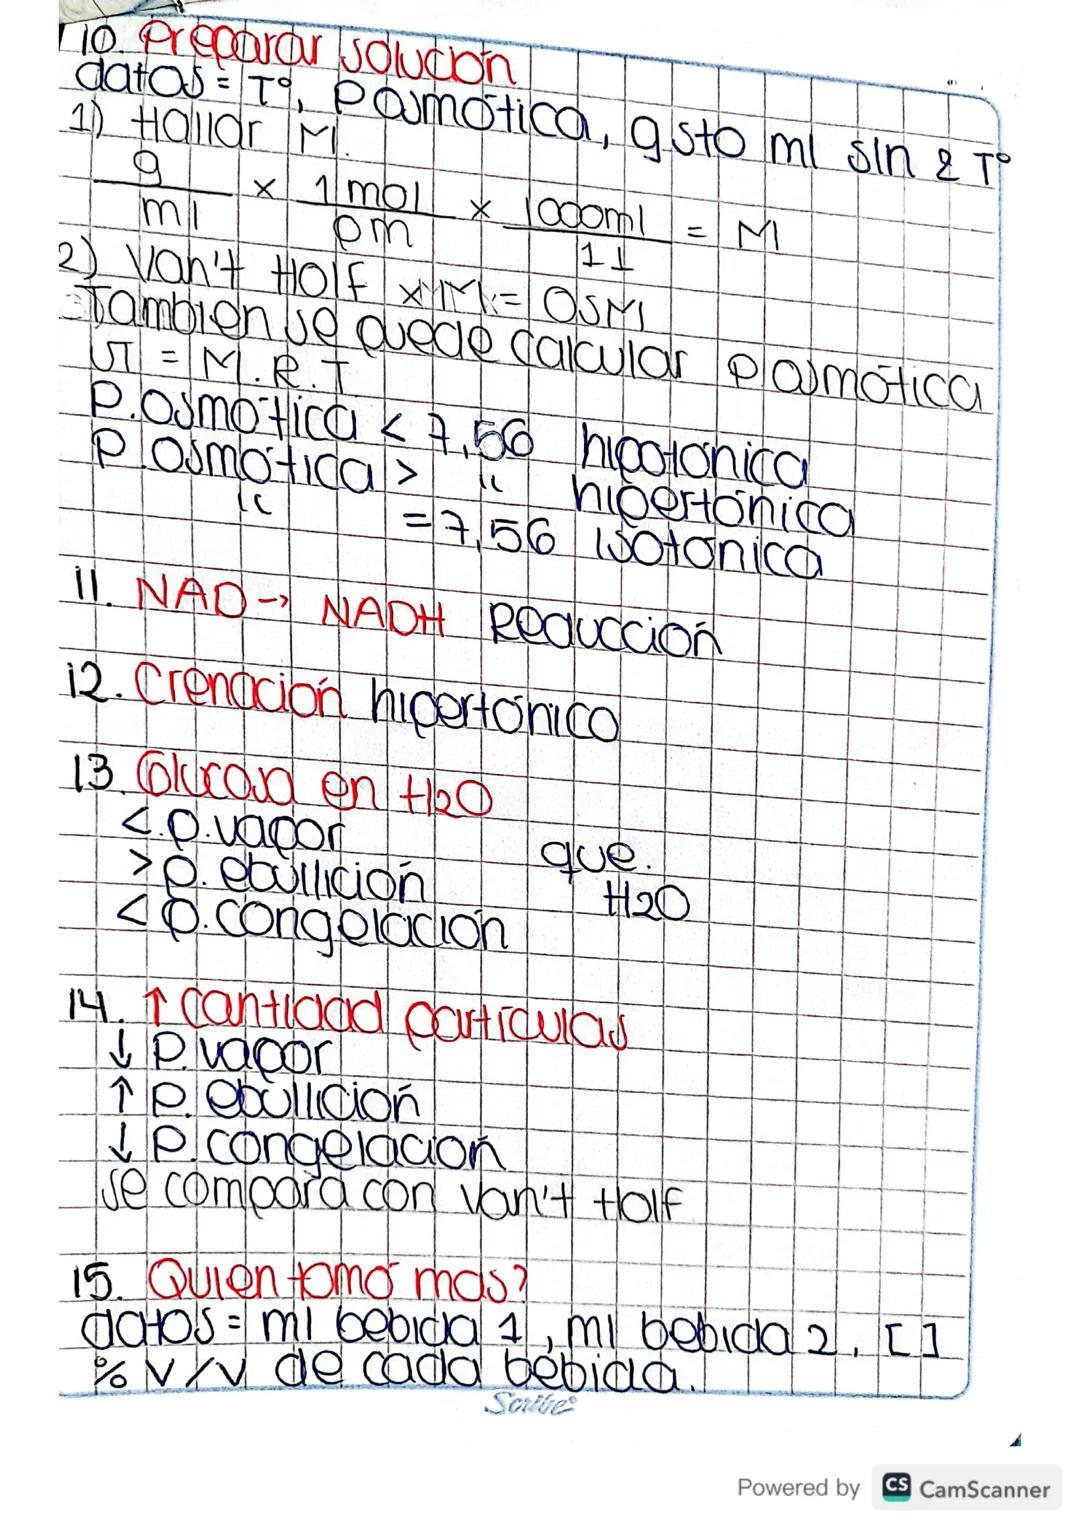 10. Preparar solución
datos = T°, Posmótica, g sto ml sln 2 T°
1) Hallar M.
g/ml x 1 mol/pm x 1000ml/1 L = M
2) Van't Holf x M = OSM
También se puede calcular Posmótica
π = M.R.T
P.osmótica < 7,56 hipotónica
P.osmótica > " hipertónica
" = 7,56 isotónica
11. NAD → NADH Reducción
12. Crenación hipertónico
13. Glucosa en H2O
< p.vapor
> p. ebullición que.
< p.congelación H2O
14. ↑ cantidad partículas
↓ P.vapor
↑ P. ebullición
↓ P.congelación
se compara con Van't Holf
15. Quién tomó mas?
datos = ml bebida 1, ml bebida 2, [ ]
% V/V de cada bebida.
Scribe
Powered by CS CamScanner